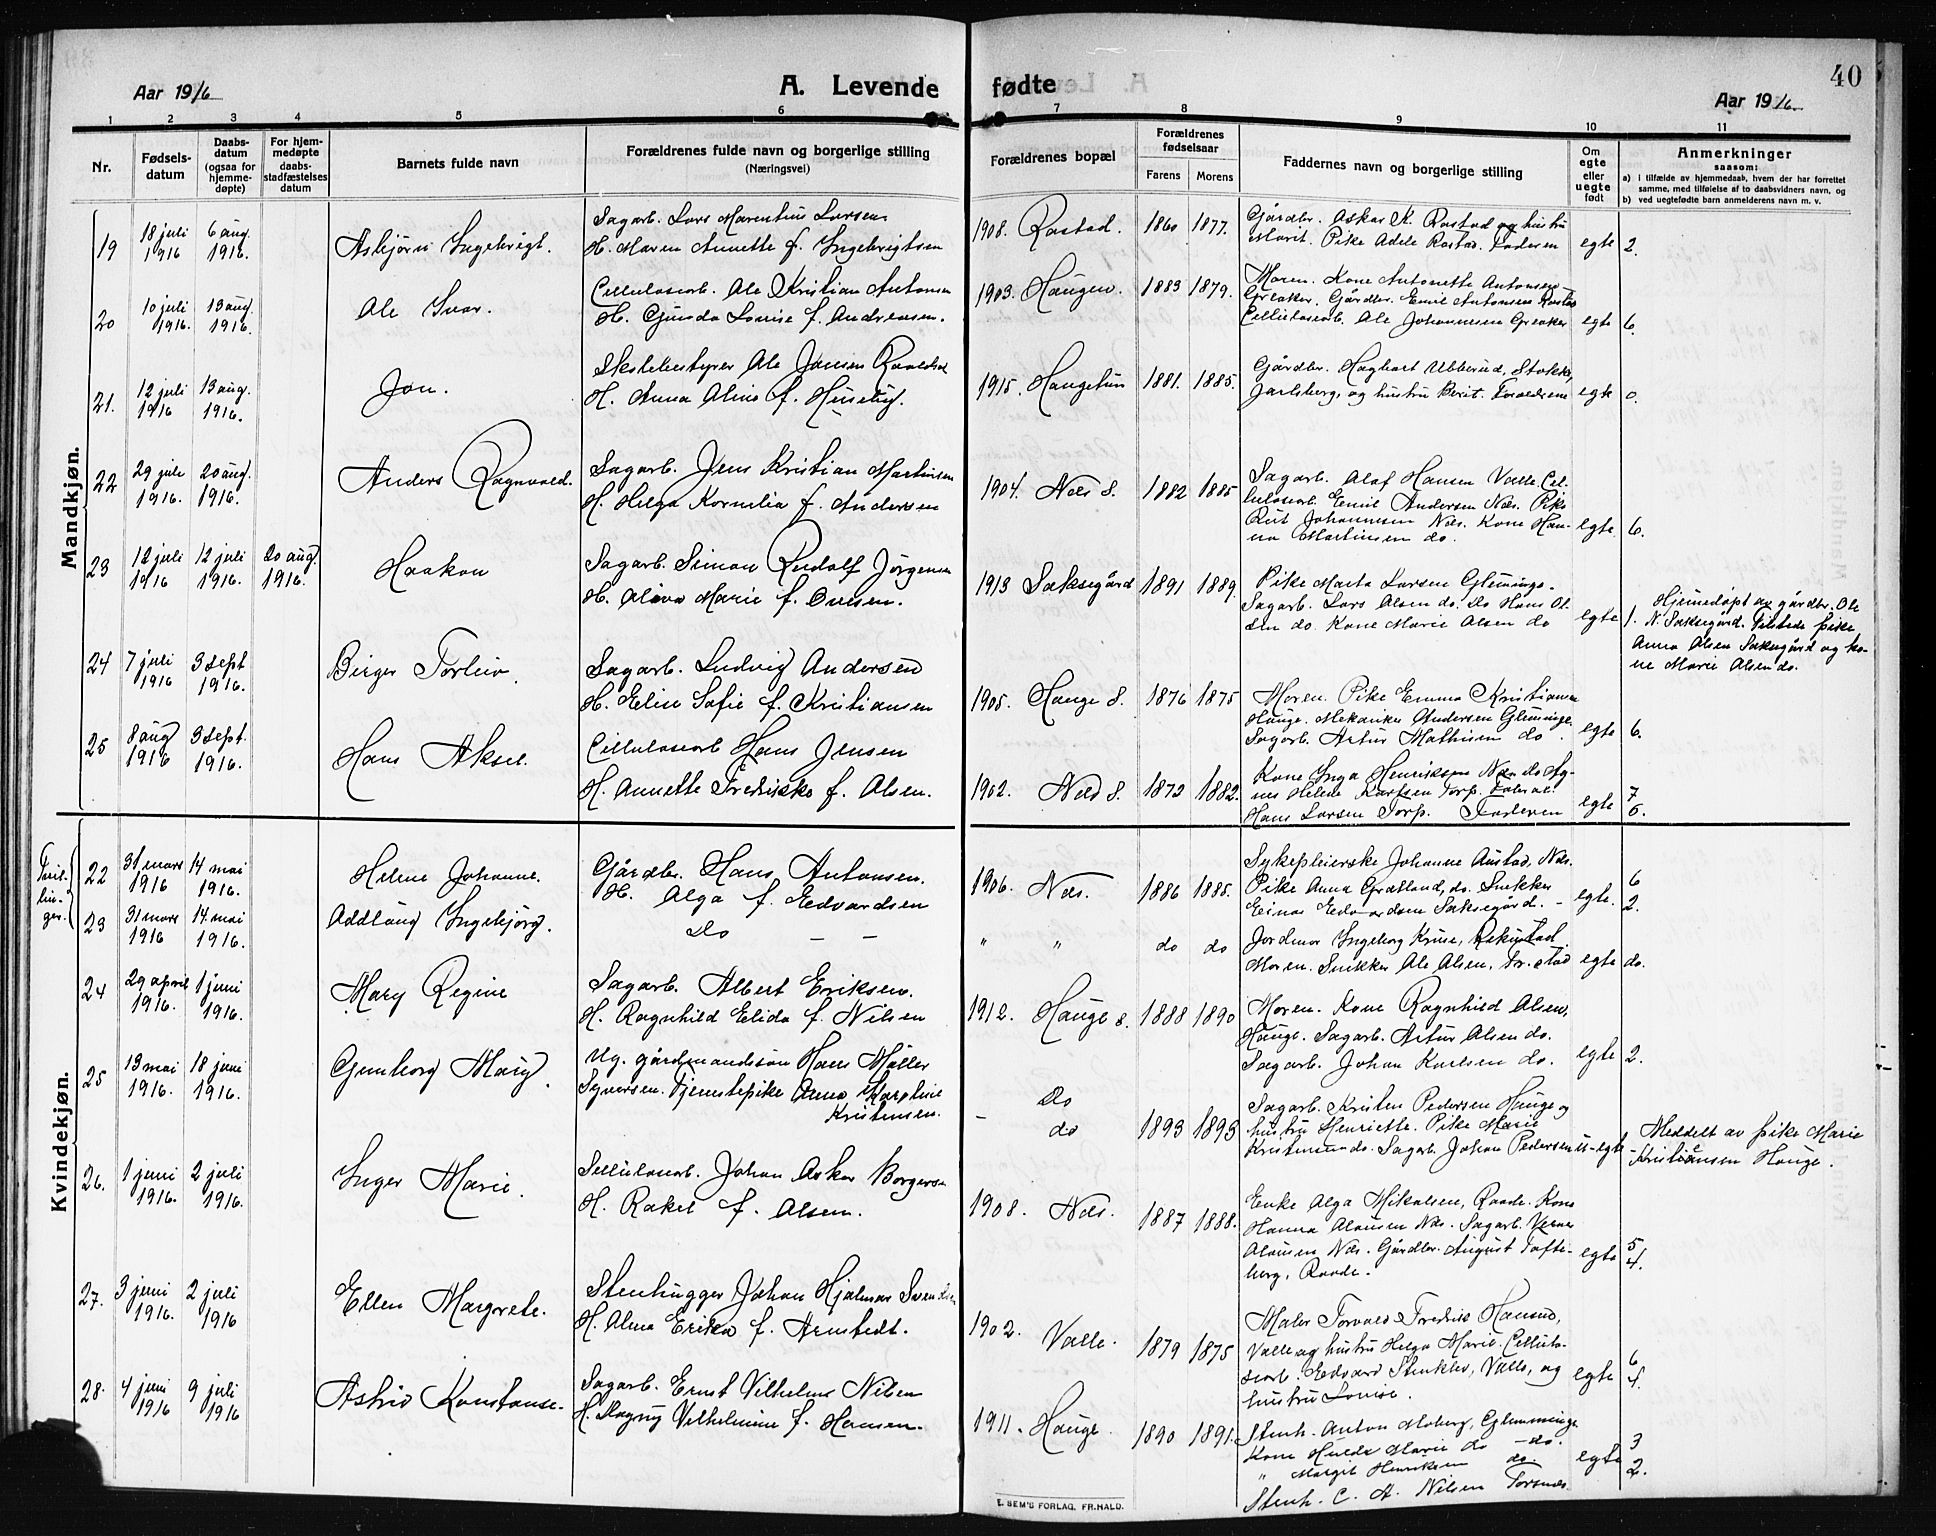 Aar 1916
A. Levende fødte
Aar 1916
40
1 2 3 4 5 6 7 8 9 10 11
Nr.
Fødsels-
datum
Daabs-
datum
(ogsaa for
hjemme-
døpte)
For hjem-
medøpte
daabs-
stadfæstelses
datum
Barnets fulde navn
Forældrenes fulde navn og borgerlige stilling
(Næringsvei)
Forældrenes bopæl
Forældrenes
fødselsaar
Farens Morens
Faddernes navn og borgerlige stilling
Om
egte
eller
uegte
født
Anmerkninger
saasom:
a) i tilfælde av hjemmedaab, hvem der har forrettet
samme, med tilføielse af to daabsvidners navn, og
b) ved uegtefødte barn anmelderens navn m. v.
Mandkjøn.
19 18 juli 1916 6 aug. 1916. Asbjørn Ingebrigt.
Sagarb. Lars Marentius Larsen
H. Maren Annette f. Ingebrigtsen
1908. Rostad. 1860 1877.
Gårdbr. Oskar K. Rostad og hustru
Marit. Pike Adele Rostad. Faderen egte 2.
20 10 juli 1916. 13 aug. 1916. Ole Ivar.
Cellulosearb. Ole Kristian Antonsen
H. Gunda Lovise f. Andreasen.
1903. Haugen. 1883 1879.
Moren. Kone Antonette Antonsen
Greaker. Gårdbr. Emil Antonsen Rostad
Cellulosearb. Ole Johannesen Greaker egte 6.
21. 12 juli 1916 13 aug. 1916. Jon.
Skolebestyrer Ole Jonsen
H. Anna Oline f. Huseby.
1915. Haugetun 1881. 1885.
Gårdbr. Hagbart Ubberud, Stokke,
Jarlsberg, og hustru Berit. Forældrene egte 0.
22 29 juli 1916. 20 aug. 1916. Anders Ragnvald.
Sagarb. Jens Kristian Martinsen
H. Helga Kornelia f. Andersen
1904. Næs S. 1882 1885
Sagarb. Olaf Hansen Valle. Cel-
lulosearb. Emil Andersen Næs. Pike
Rut Johannesen Næs. Kone Han-
na Martinsen do. egte 6.
23 12 juli 1916 12 juli 1916. 20 aug. 1916. Haakon
Sagarb. Simon Rudolf Jörgensen
H. Olava Marie f. Ovesen.
1913 Sæksegård 1891 1889.
Pike Marta Larsen Glemminge.
Sagarb. Lars Olsen do. Do Hans Ol-
sen do. Kone Marie Olsen do egte 1.
Hjemedøpt av gårdbr. Ole
N. Sæksegård. Tilstede pike
Anna Olsen Sæksegård og ko-
ne Marie Olsen do.
24 7 juli 1916 3 sept 1916. Birger Torleiv.
Sagarb. Ludvig Andersen
H. Elise Sofie f. Kristiansen
1905. Hauge S. 1876 1875
Moren. Pike Emma Kristiansen
Hauge. Mekaniker Andersen Glemminge.
Sagarb. Artur Mathisen do. egte 6.
25 8 aug 1916 3 sept. 1916. Hans Aksel.
Cellulosearb Hans Jensen
H. Annette Fredrikke f. Olsen.
1902. Næs S. 1872 1882.
Kone Inga Henriksen Næs. Do Ag-
nes Helene Karlsen Torp.
Hans Larsen Torp. Faderen egte 7 5.
Kvindekjøn.
Tvil-
lin-
ger.
22 31 mars 1916 14 mai 1916. Helene Johanne.
Gårdbr. Hans Antonsen.
H. Olga f. Edvardsen
1906. Næs. 1886 1885.
Sykepleierske Johanne Austad, Næs.
Pike Anna Græsland, do. Snekker
Einar Edvardsen Sæksegård. - egte. 6 2.
23 31 mars 1916 14 mai 1916. Addlaug Ingebjørg.
Do — —
" " do do
Jordmor Ingeborg Kruse,
Moren. Snekker Ole Olsen, egte do.
24 29 april 1916. 1 juni 1916. Mary Regine
Sagarb. Albert Eriksen.
H. Ragnhild Elida f. Nilsen
1912. Hauge S. 1888 1890
Moren. Kone Ragnhild Olsen,
Hauge. Sagarb. Artur Olsen do.
Sagarb. Johan Karlsen do. egte 2.
25 13 mai 1916. 18 juni 1916. Gunborg Mary.
Ug. gårdmandssøn Hans Møller
Syversen. Tjenestepike Anna Karoline
Kristensen.
- Do
do 1893 1893
Sagarb. Kristen Pedersen Hauge og
hustru Henriette. Pike Marie
Kristensen do. Sagarb. Johan Pedersen u-egte 1
Meddelt av pike Marie
Kristensen Hauge.
26. 1 juni 1916. 2 juli 1916. Inger Marie.
Cellulosearb. Johan Oskar Borgersen
H. Rakel f. Olsen.
1908. Næs. 1887 1888.
Enke Olga Mikalsen, Raade. Kone
Hanna Olausen Næs. Sagarb. Verner
Olausen Næs. Gårdbr. August Tofte-
berg, Raade. egte 5 4.
27. 3 juni 1916. 2 juli 1916 Ellen Margrete.
Stenhugger Johan Hjalmar Svendsen
H. Alma Erika f. Arnstedt.
1902. Valle. 1879 1875
Maler Torvald Fredrik Hansen,
Valle og hustru Helga Marie. Cellulo-
searb. Edvard Stenklev, Valle, og
hustru Lovise. egte 6 4.
28. 4 juni 1916 9 juli 1916 Astrid Konstanse.
Sagarb. Ernst Vilhelm Nilsen
H. Dagny Vilhelmine f. Hansen.
1911. Hauge. 1890 1891.
Stenh. Anton Moberg, Glemminge
Kone Hulda Marie do — do.
" Margit Henriksen do.
Stenh. C. A. Nilsen Torsnes egte 3 2.
E. SEM'S FORLAG, FR.HALD.